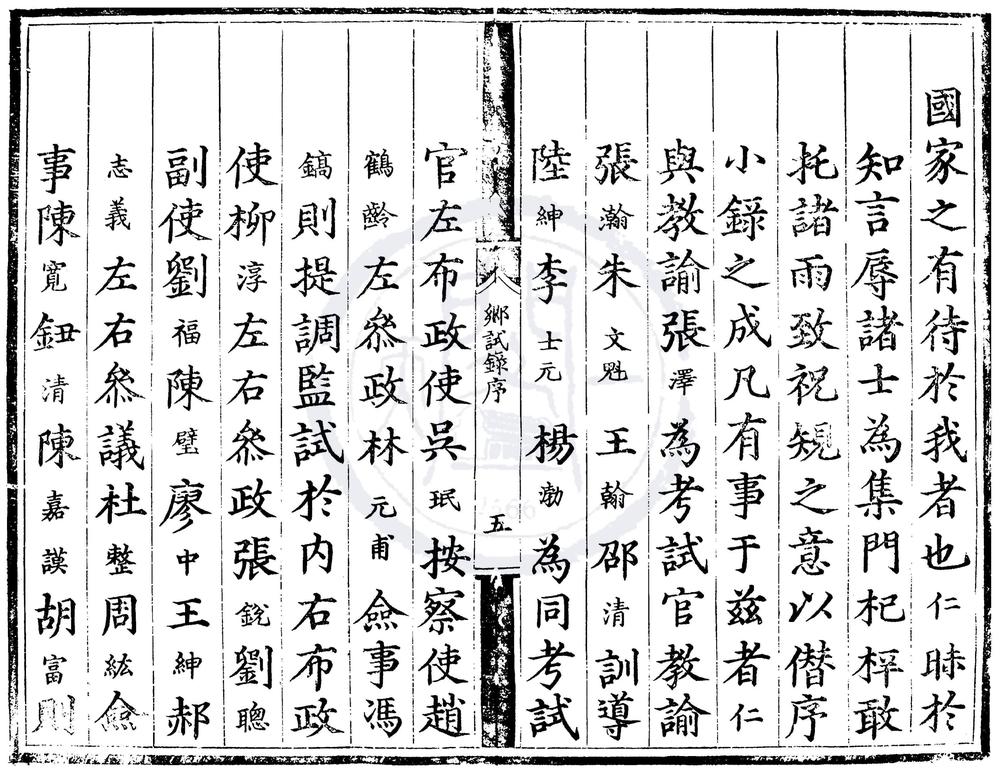 國家之有待於我者也仁昧於
知言辱諸士為集門杞梓敢
托諸雨致祝規之意以僣序
小錄之成凡有事于茲者仁
與教諭張澤為考試官教諭
張瀚朱文魁王翰邵清訓導
陸紳李士元楊渤為同考試
鄉試錄序
五
官左布政使吳珉按察使趙
鶴齡左叅政林元甫僉事馮
鎬則提調監試於内右布政
使柳淳左右叅政張銳劉聰
副使劉福陳璧廖中王紳郝
志義左右叅議杜整周紘僉
事陳寬鈕清陳嘉謨胡富則